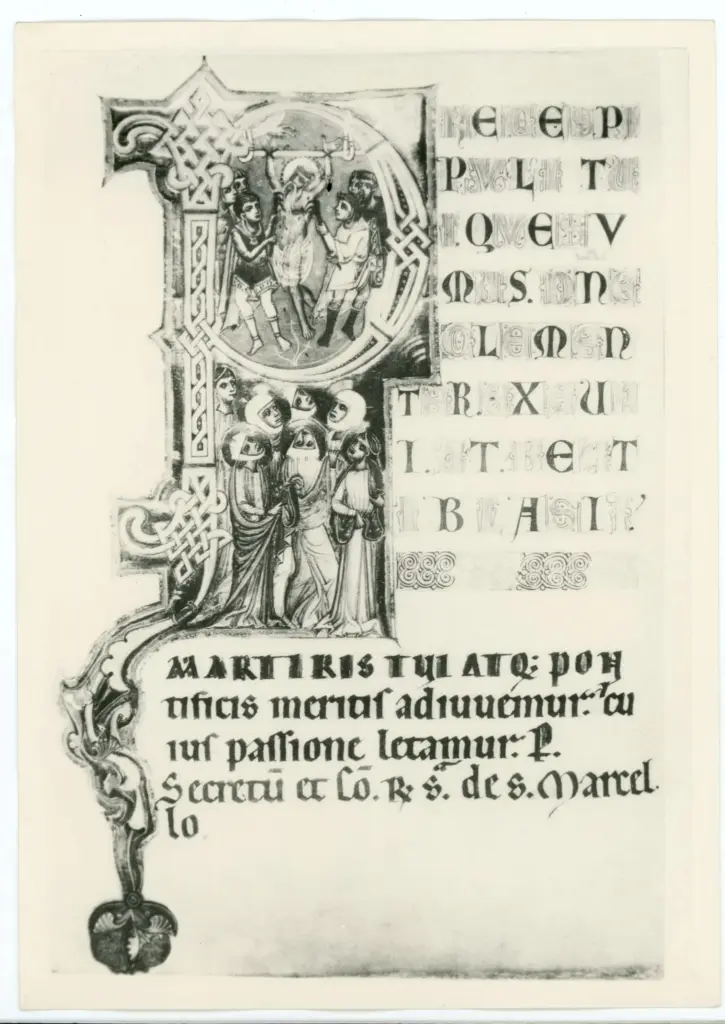 RECES PO
PVLI TVI
.QVESV
MVS. DNE
CLEMEN
TER. EXAU
DI. VT. BEAT
I BLASII.
MARTIRIS TUI ATQ: PON
tificis meritis adiuuemur: cu
ius passione letamur: P.
Secretū et cō. R s. de s. Marcel
lo